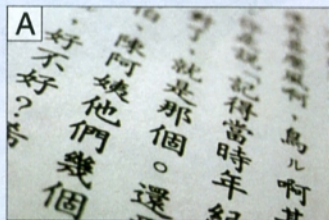 A
風啊，鳥ㄦ啊
說「記得當時年
對了，就是那個。還
伯，陳阿姨他們幾個
好不好？